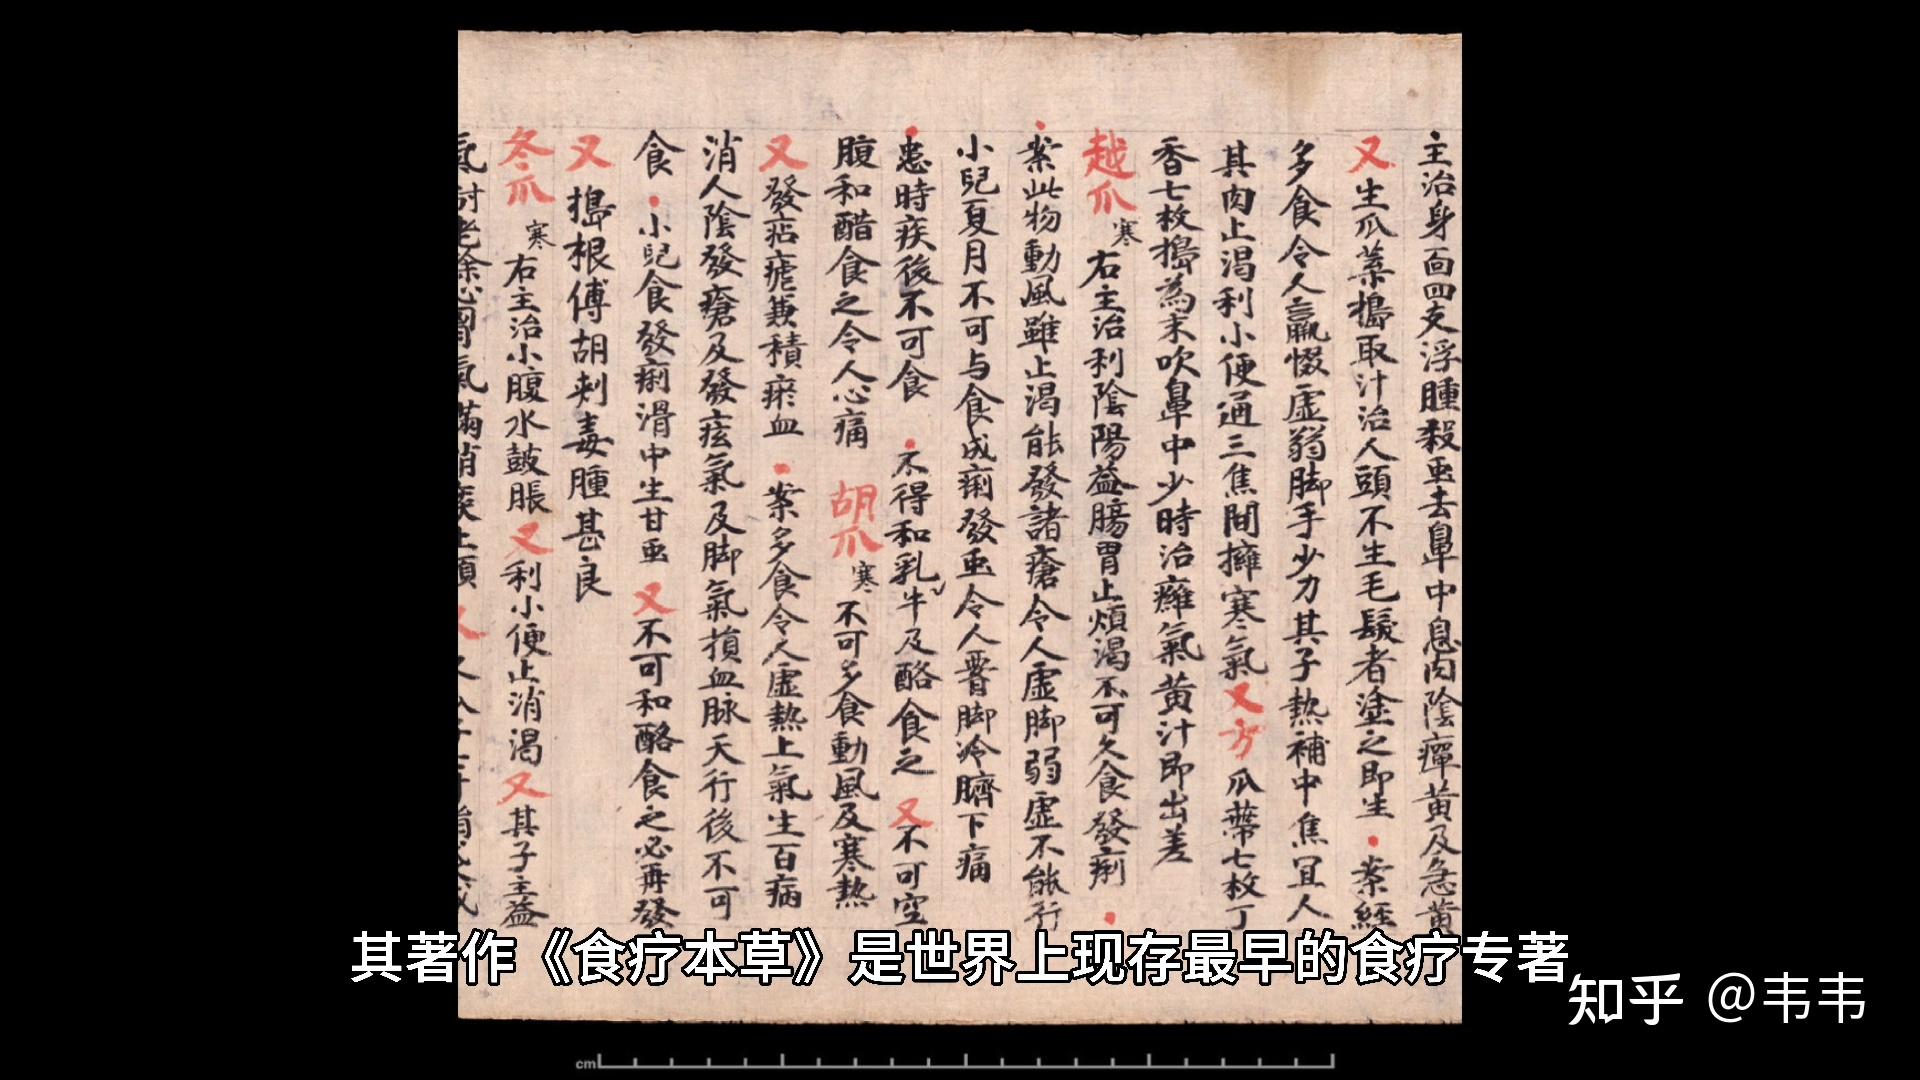 主治身面四支浮腫殺虫去鼻中息肉陰癉黄及急黄
又生瓜葉搗取汁治人頭不生毛髮者塗之即生 案經
多食令人羸惙虚弱脚手少力其子熱補中焦宜人
其肉止渴利小便通三焦間擁寒氣又方瓜蔕七枚丁
香七枚搗為末吹鼻中少時治癰氣黄汁即出差
越瓜寒右主治利陰陽益腸胃止煩渴不可久食發痢
案此物動風雖止渴能發諸瘡令人虚脚弱虚不能行
小兒夏月不可与食成痢發虫令人 脚冷臍下痛
患時疾後不可食 不得和乳牛及酪食之 又不可空
腹和醋食之令人心痛 胡瓜寒不可多食動風及寒熱
又發痁瘧兼積瘀血 案多食令人虚熱上氣生百病
消人陰發瘡及發疰氣及脚氣損血脉天行後不可
食 小兒食發痢滑中生甘虫 又不可和酪食之必再發
又搗根傅胡刺毒腫甚良
冬瓜寒右主治小腹水鼓脹又利小便止消渴又其子主益
其著作《食疗本草》是世界上现存最早的食疗专著
知乎 @韦韦
cm